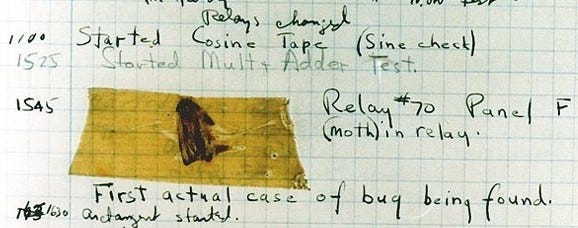 Relays changed
1100 Started Cosine Tape (Sine check)
1525 Started Mult+ Adder Test.
1545 Relay #70 Panel F
(moth) in relay.
First actual case of bug being found.
1630 arctangent started.